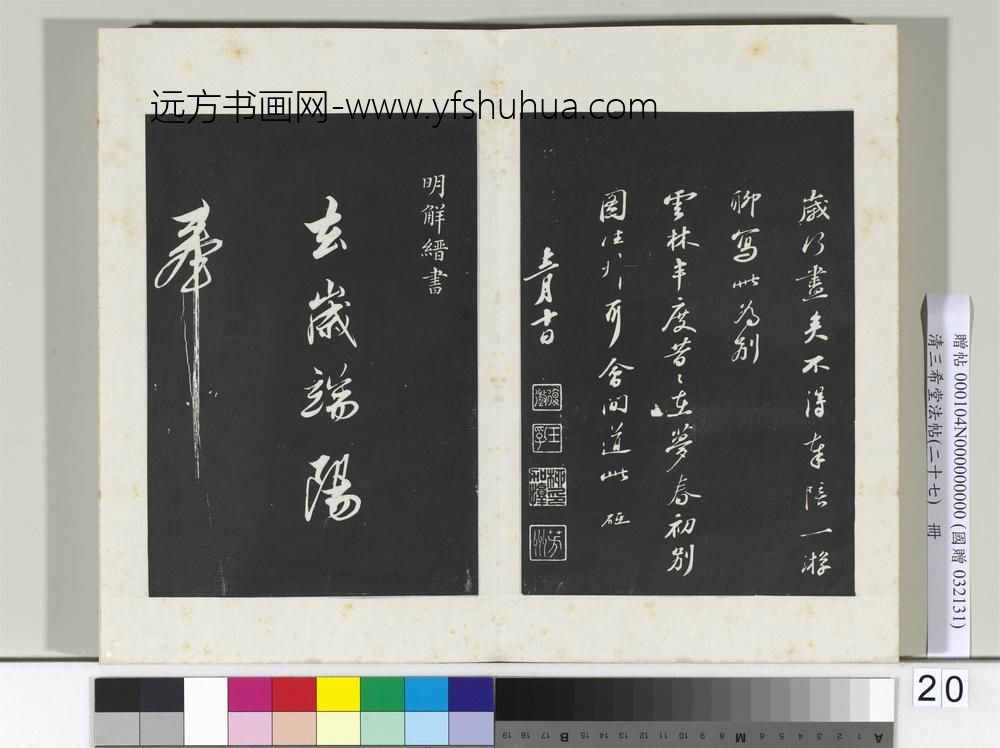 远方书画网-www.yfshuhua.com
歲行盡矣不得奉陪一游
聊寫此為別
雲林丰度昔〻在夢春初別
圖
會間道此
十日
明解縉書
去歲端陽
奉
王孚
贈帖 000104N000000000 (國贈 032131)
清三希堂法帖(二十七) 冊
20
A 1 2 3 4 5 6 M 8 9 10 11 12 13 14 15 B 17 18 19